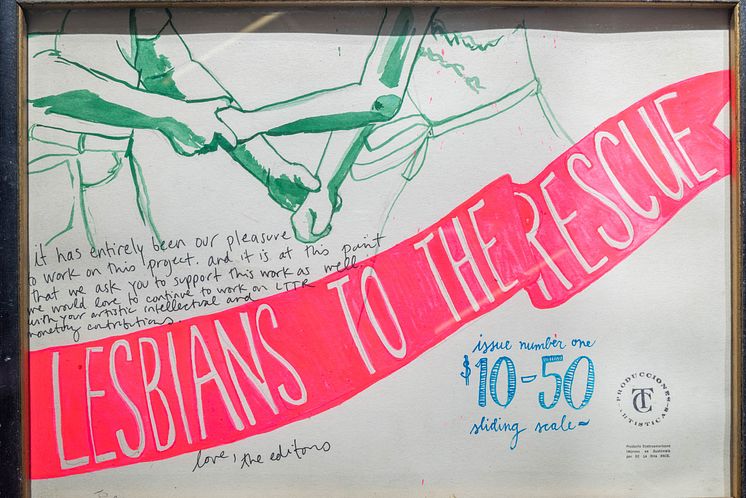 it has entirely been our pleasure
to work on this project. and it is at this point
that we ask you to support this work as well.
we would love to continue to work on LTTR
with your artistic intellectual and
monetary contributions.
LESBIANS TO THE RESCUE
issue number one
$10-50
sliding scale~
love, the editors
PRODUCCIONES
ARTISTICAS
TC
Producto Centroamericano
impreso en Guatemala